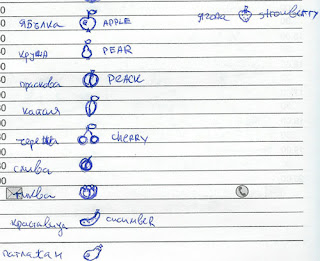 ябълка APPLE ягода strowberry
круша PEAR
праскова PEACK
кайсия
череша CHERRY
слива
тиква
краставица CUCUMBER
патлажан